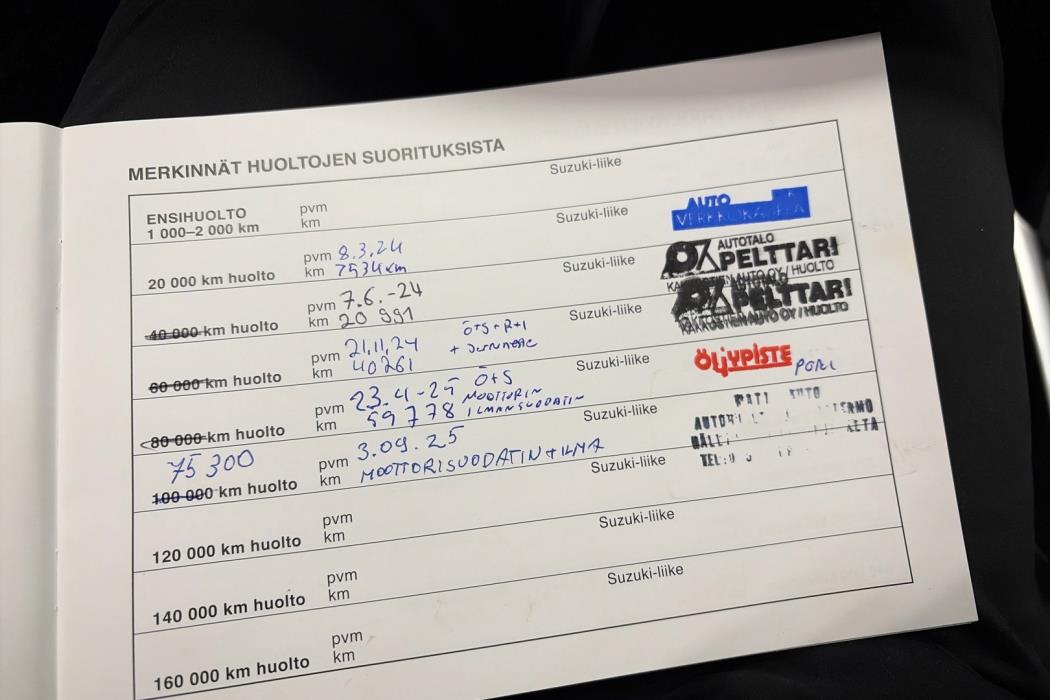 MERKINNÄT HUOLTOJEN SUORITUKSISTA
Suzuki-liike
ENSIHUOLTO
1 000–2 000 km
pvm
km
Suzuki-liike
AUTO
20 000 km huolto
pvm 8.3.24
km 7534 km
Suzuki-liike
AUTOTALO
PELTTARI
AUTO OY / HUOLTO
40 000 km huolto
pvm 7.6.-24
km 20 991
Suzuki-liike
PELTTARI
AUTO OY / HUOLTO
60 000 km huolto
pvm 21.11.24
km 40261
Ö+S+R+I
+
Suzuki-liike
ÖLJYPISTE PORI
80 000 km huolto
pvm 23.4-25 Ö+S
km 59778 MOOTTORIN
ILMANSUODATIN
Suzuki-liike
75 300
100 000 km huolto
pvm 3.09.25
km MOOTTORISUODATIN + ILMA
Suzuki-liike
TEL:
120 000 km huolto
pvm
km
Suzuki-liike
140 000 km huolto
pvm
km
Suzuki-liike
160 000 km huolto
pvm
km